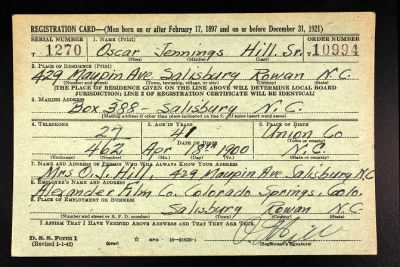 REGISTRATION CARD—(Men born on or after February 17, 1897 and on or before December 31, 1921)
SERIAL NUMBER 1. NAME (Print) ORDER NUMBER
T 1270 Oscar Jennings Hill Sr. T 10994
(First) (Middle) (Last)
2. PLACE OF RESIDENCE (Print)
429 Maupin Ave. Salisbury Rowan N.C.
(Number and street) (Town, township, village, or city) (County) (State)
[THE PLACE OF RESIDENCE GIVEN ON THE LINE ABOVE WILL DETERMINE LOCAL BOARD
JURISDICTION; LINE 2 OF REGISTRATION CERTIFICATE WILL BE IDENTICAL]
3. MAILING ADDRESS
Box 388 - Salisbury N.C.
[Mailing address if other than place indicated on line 2. If same insert word same]
4. TELEPHONE 5. AGE IN YEARS 6. PLACE OF BIRTH
27 41 Union Co
DATE OF BIRTH (Town or county)
462 Apr 18 1900 N.C.
(Exchange) (Number) (Mo.) (Day) (Yr.) (State or country)
7. NAME AND ADDRESS OF PERSON WHO WILL ALWAYS KNOW YOUR ADDRESS
Mrs O. J. Hill, 429 Maupin Ave Salisbury NC
8. EMPLOYER'S NAME AND ADDRESS
Alexander Film Co. Colorado Springs, Colo.
9. PLACE OF EMPLOYMENT OR BUSINESS
Salisbury Rowan N.C.
(Number and street or R. F. D. number) (Town) (County) (State)
I AFFIRM THAT I HAVE VERIFIED ABOVE ANSWERS AND THAT THEY ARE TRUE.
D. S. S. Form 1
(Revised 1-1-42) (over)
(Registrant's signature)